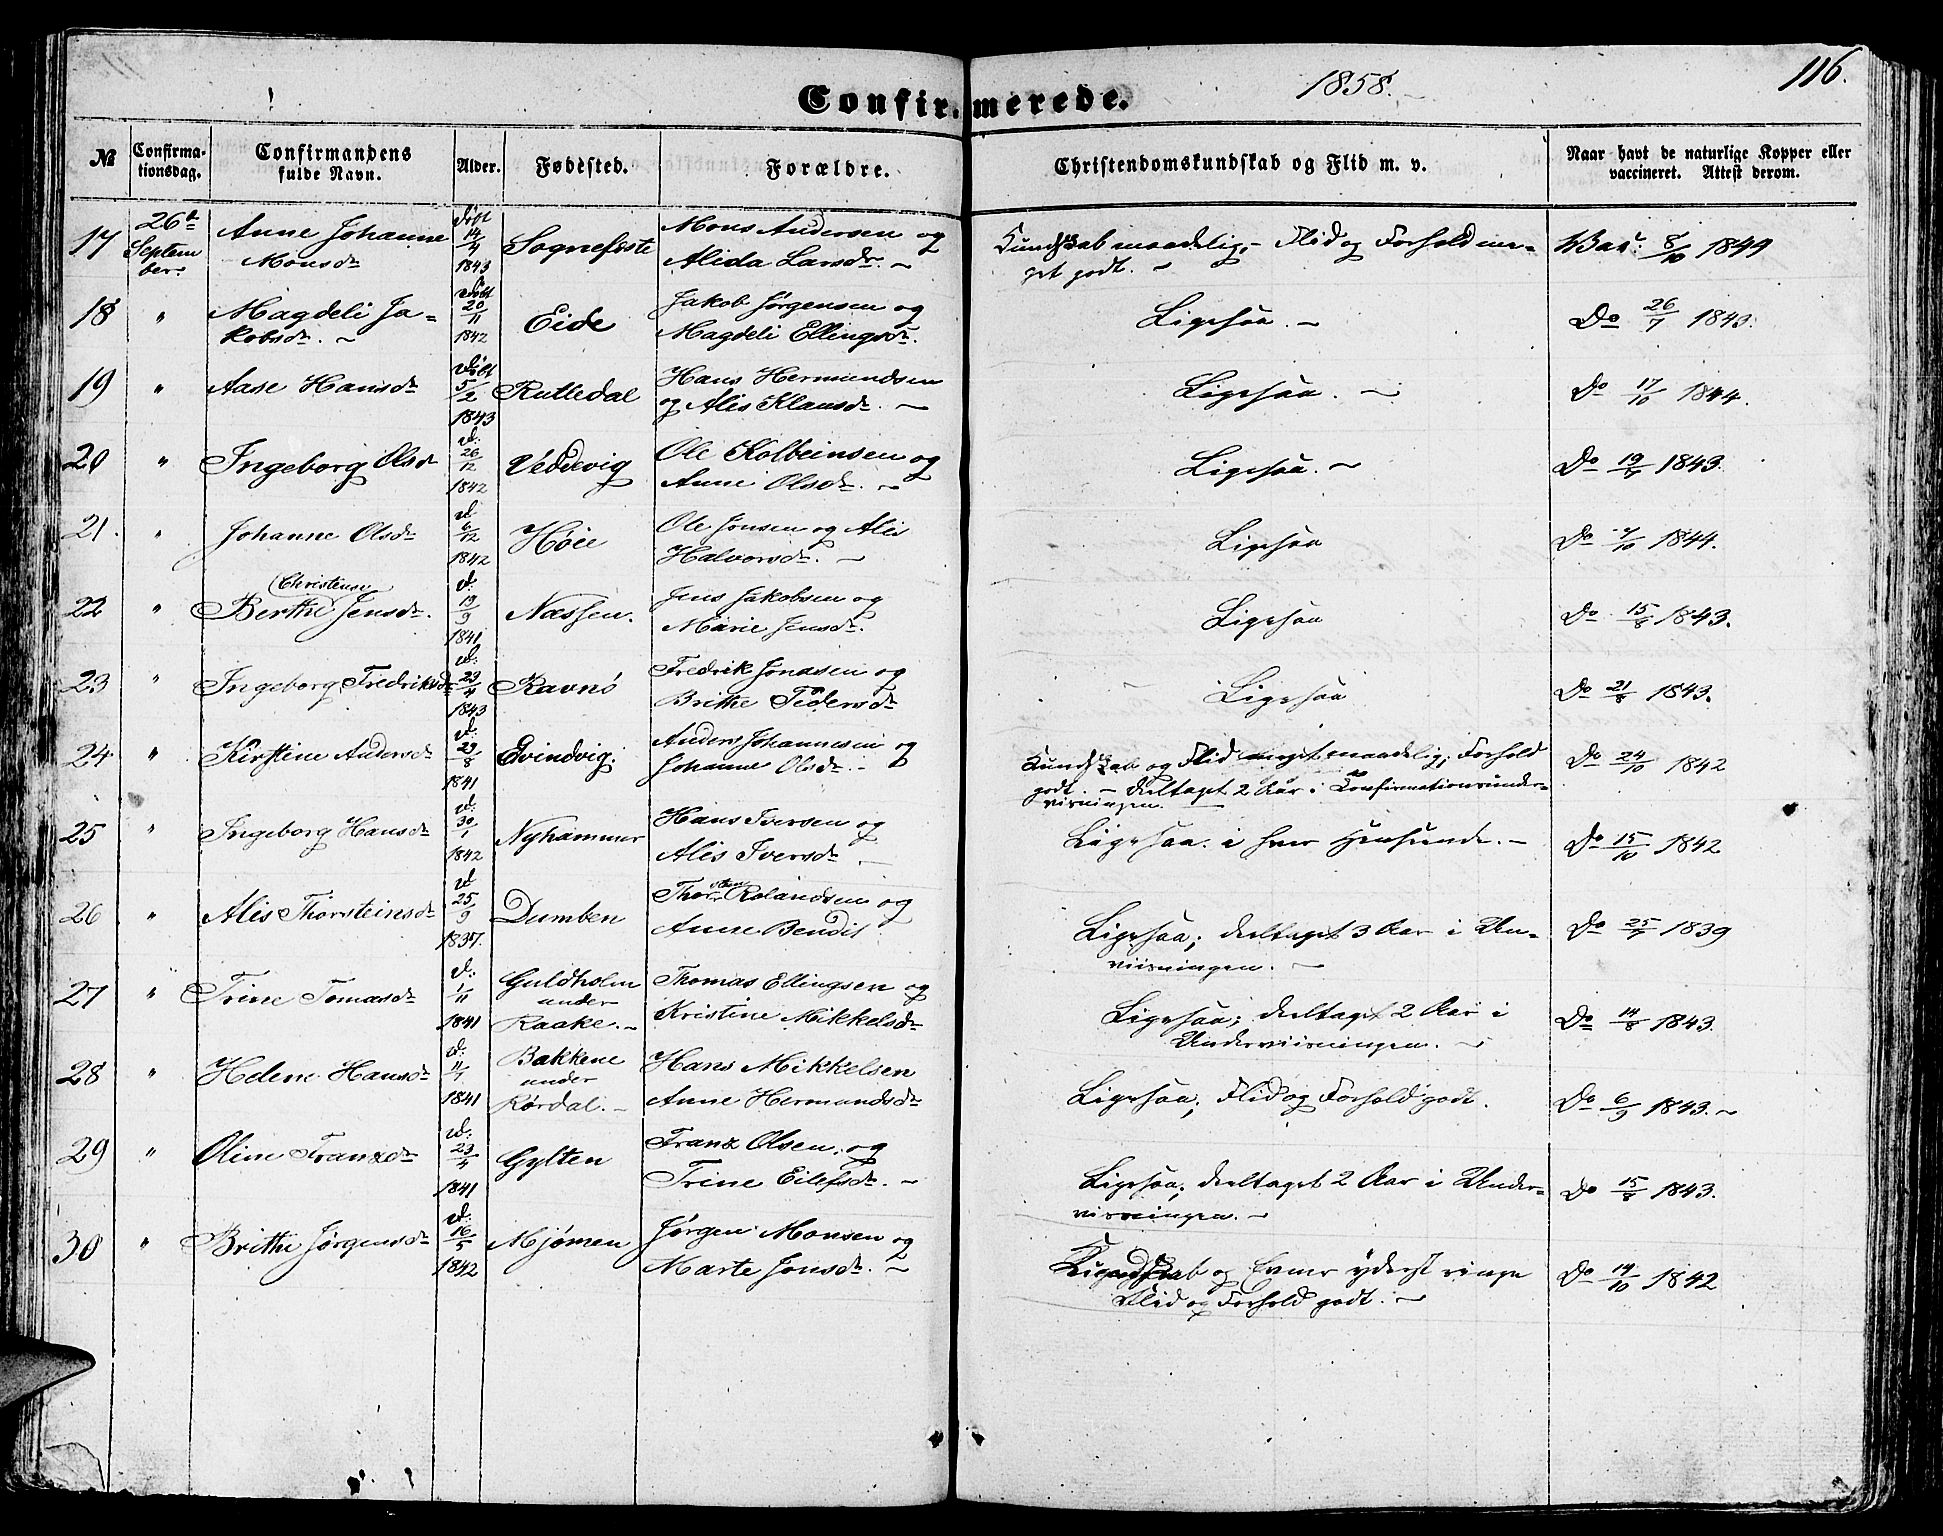 1858.
116.
Confirmerede.
№ Confirma-tionsdag. Confirmandens fulde Navn. Alder. Fødested. Forældre. Christendomskundskab og Flid m. v. Naar havt de naturlige Kopper eller vaccineret. Attest derom.
17 26d September Anne Johanne Monsdr Døbt 14/4 1843 Sognefeste Mons Andersen og Alida Larsdr. Kundskab maadelig, Flid og Forhold meget godt. Vac. 8/10 1849
18 " Magdeli Jakobsdr. Døbt 20/11 1842 Eide Jakob Jørgensen og Magdeli Ellingsdr. Ligesaa. Do 26/7 1843.
19 " Aase Hansdr Døbt 5/2 1843 Rutledal Hans Hermundsen og Alis Klausdr. Ligesaa. Do 17/10 1844.
20 " Ingeborg Olsdr d: 26/12 1842 Veddevig Ole Kolbeinsen og Anne Olsdr. Ligesaa. Do 19/7 1843.
21. " Johanne Olsdr d 6/12 1842 Høie Ole Jonsen og Ali Halvorsdr. Ligesaa Do 7/10 1844.
22 " Berthe (Christense) Jensdr. d: 19/9 1841 Næssen. Jens Jakobsen og Marie Jensdr. Ligesaa Do 15/8 1843.
23 " Ingeborg Fredriksdr d: 23/4 1843 Ravnø Fredrik Jonasen og Brithe Pedersdr Ligesaa Do 21/8 1843.
24 " Kirstine Andersdr d: 29/8 1841 Evindvig. Anders Johannesen og Johanne Olsdr. Kundskab og Flid maadelig, Forhold godt. – deeltaget 2 Aar i Confirmationsundervisningen. Do 24/10 1842
25 " Ingeborg Hansdr d: 30/1 1842 Nyhammer Hans Iversen og Alis Iversdr. Ligesaa i hver Henseende. – Do 15/10 1842
26 " Alis Thorsteinsdr d 25/9 1837. Dumben Thorsten Rolandsen og Anne Bendit Ligesaa; deeltaget 3 Aar i Unviisningen. Do 25/7 1839
27 " Trine Tomasdr d: 1/11 1841 Guldholm under Raake. Thomas Ellingsen og Kristine Mikkelsdr Ligesaa; deeltaget 2 Aar i Underviisningen. Do 14/8 1843.
28 " Helene Hansdr d: 11/7 1841 Bakkene under Rørdal. Hans Mikkelsen Anne Hermandsdr Ligesaa; Flid og Forhold godt. Do 6/9 1843.
29 " Oline Franzdr d: 23/4 1841 Gylten Franz Olsen, og Trine Eilefsdr. Ligesaa; deeltaget 2 Aar i Undervisningen. Do 15/8 1843.
30 " Brithe Jørgensdr d: 16/5 1842 Mjømen Jørgen Monsen og Marte Jonsdr. Kundskab og Evner yderst ringe Flid og Forhold godt. Do 14/10 1842